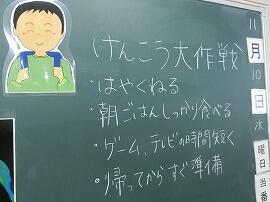 けんこう大作戦
・はやくねる
・朝ごはんしっかり食べる
・ゲーム、テレビの時間短く
・帰ってからすぐ準備
11
月
10
日
曜日
当番